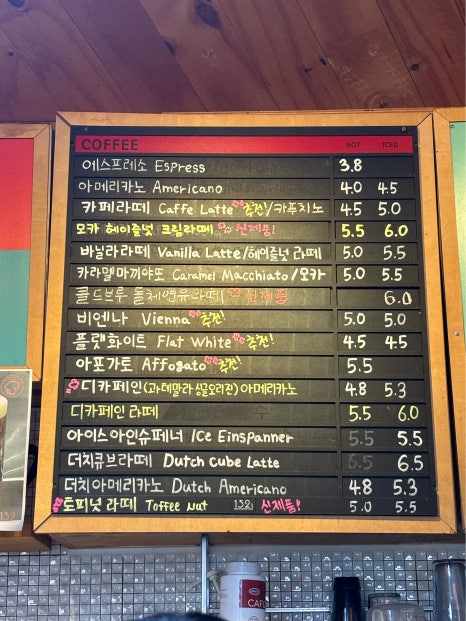 COFFEE HOT ICED
에스프레소 Espress 3.8
아메리카노 Americano 4.0 4.5
카페라떼 Caffe Latte 추천!/카푸치노 4.5 5.0
모카 헤이즐넛 크림라떼 신제품! 5.5 6.0
바닐라라떼 Vanilla Latte/헤이즐넛 라떼 5.0 5.5
카라멜마끼야또 Caramel Macchiato/모카 5.0 5.5
콜드브루 돌체연유라떼 신제품 6.0
비엔나 Vienna 추천! 5.0 5.0
플랫화이트 Flat White 추천! 4.5 4.5
아포가토 Affogato 추천! 5.5
디카페인(과테말라 싱글오리진)아메리카노 4.8 5.3
디카페인 라떼 5.5 6.0
아이스아인슈페너 Ice Einspanner 5.5 5.5
더치큐브라떼 Dutch Cube Latte 6.5 6.5
더치아메리카노 Dutch Americano 4.8 5.3
토피넛 라떼 Toffee Nut 신제품! 5.0 5.5